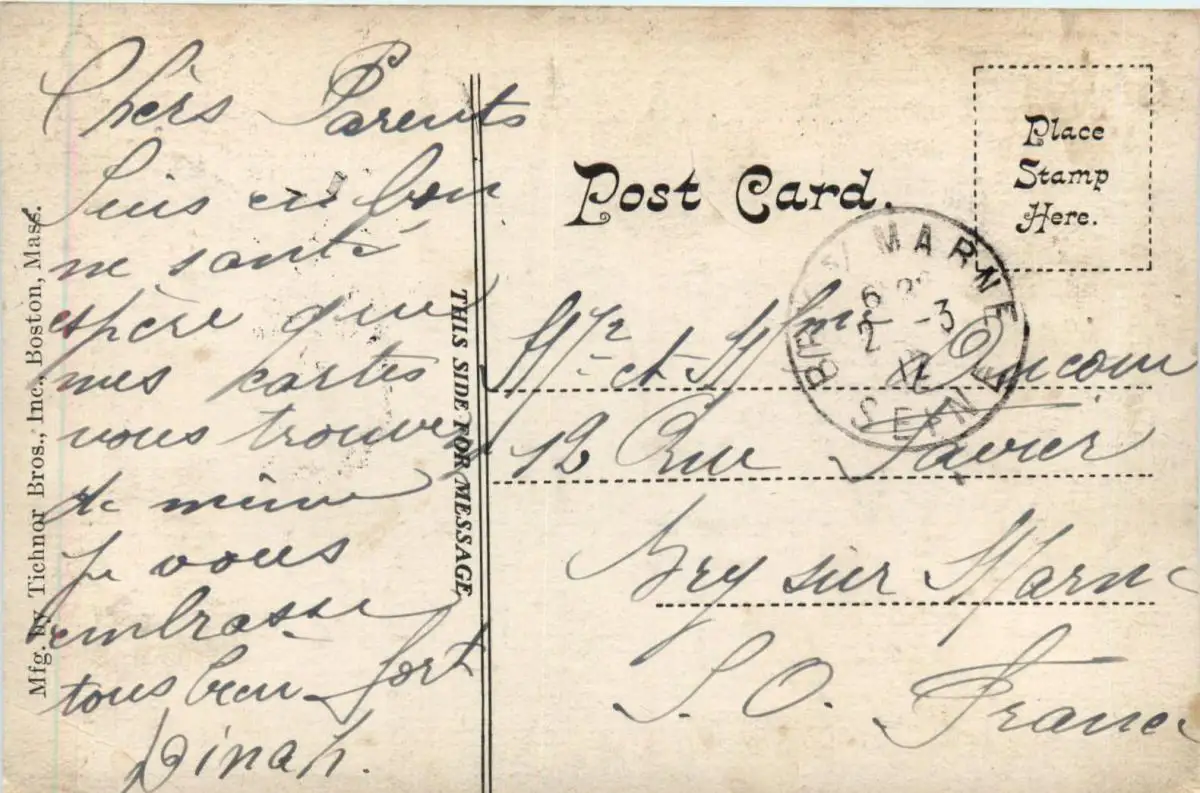 Chers Parents
Suis en bon
ne santé
espère que
mes cartes
vous trouve
de même
Je vous
embrasse
tous bien fort
Dinah.
Mfg. by Tichnor Bros., Inc., Boston, Mass.
THIS SIDE FOR MESSAGE
Post Card.
Place
Stamp
Here.
BRY S/ MARNE
2 -3
SEINE
Mr et Mme
12 Rue
Bry sur Marne
S. O. France